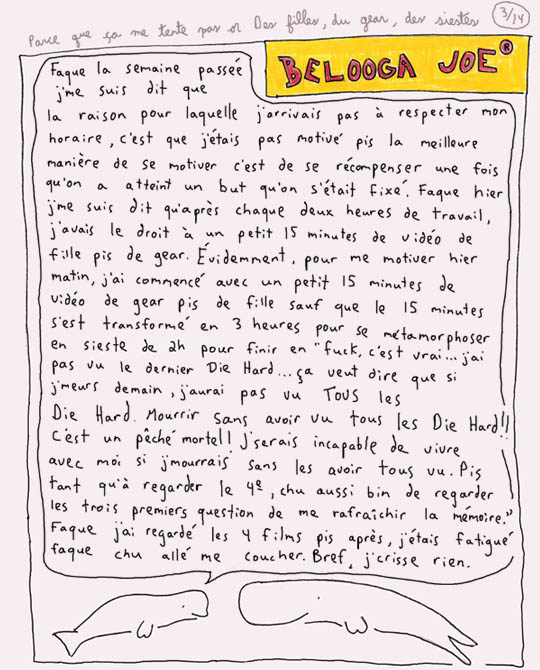 Parce que ça me tente pas or Des filles, du gear, des siestes
3/14
BELOOGA JOE®
Faque la semaine passée
j'me suis dit que
la raison pour laquelle j'arrivais pas à respecter mon
horaire, c'est que j'étais pas motivé pis la meilleure
manière de se motiver c'est de se récompenser une fois
qu'on a atteint un but qu'on s'était fixé. Faque hier
j'me suis dit qu'après chaque deux heures de travail,
j'avais le droit à un petit 15 minutes de vidéo de
fille pis de gear. Évidemment, pour me motiver hier
matin, j'ai commencé avec un petit 15 minutes de
vidéo de gear pis de fille sauf que le 15 minutes
s'est transformé en 3 heures pour se métamorphoser
en sieste de 2h pour finir en "fuck, c'est vrai... j'ai
pas vu le dernier Die Hard... ça veut dire que si
j'meurs demain, j'aurai pas vu TOUS les
Die Hard. Mourrir sans avoir vu tous les Die Hard!!
C'est un pêché mortel! J'serais incapable de vivre
avec moi si j'mourrais sans les avoir tous vu. Pis
tant qu'à regarder le 4e, chu aussi bin de regarder
les trois premiers question de me rafraîchir la mémoire."
Faque j'ai regardé les 4 films pis après, j'étais fatigué
faque chu allé me coucher. Bref, j'crisse rien.